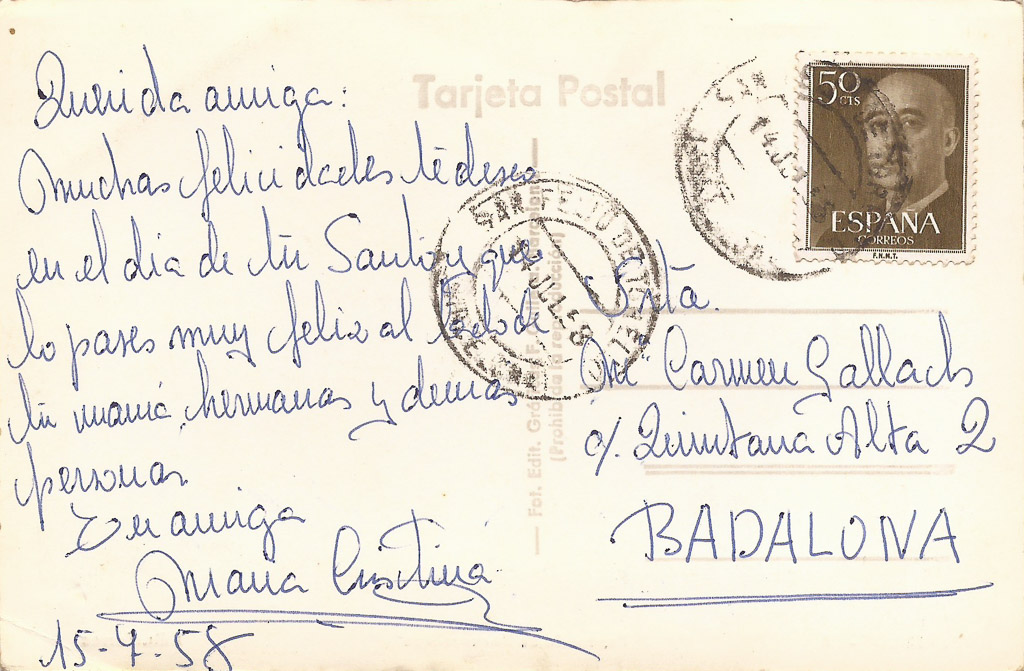 Querida amiga:
Muchas felicidades te deseo
en el dia de tu Santo y que
lo pases muy feliz al lado de
tu mamá, hermanas y demás
personas
Tu amiga
Maria Cristina
15-7-58
Tarjeta Postal
50
CTS
ESPAÑA
CORREOS
F.N.M.T.
SAN FELIU DE
JUL 58
Srta.
Mª Carmen Gallachs
c/. Quintana Alta 2
BADALONA
Fot. Edit.
(Prohibida la reproducción)